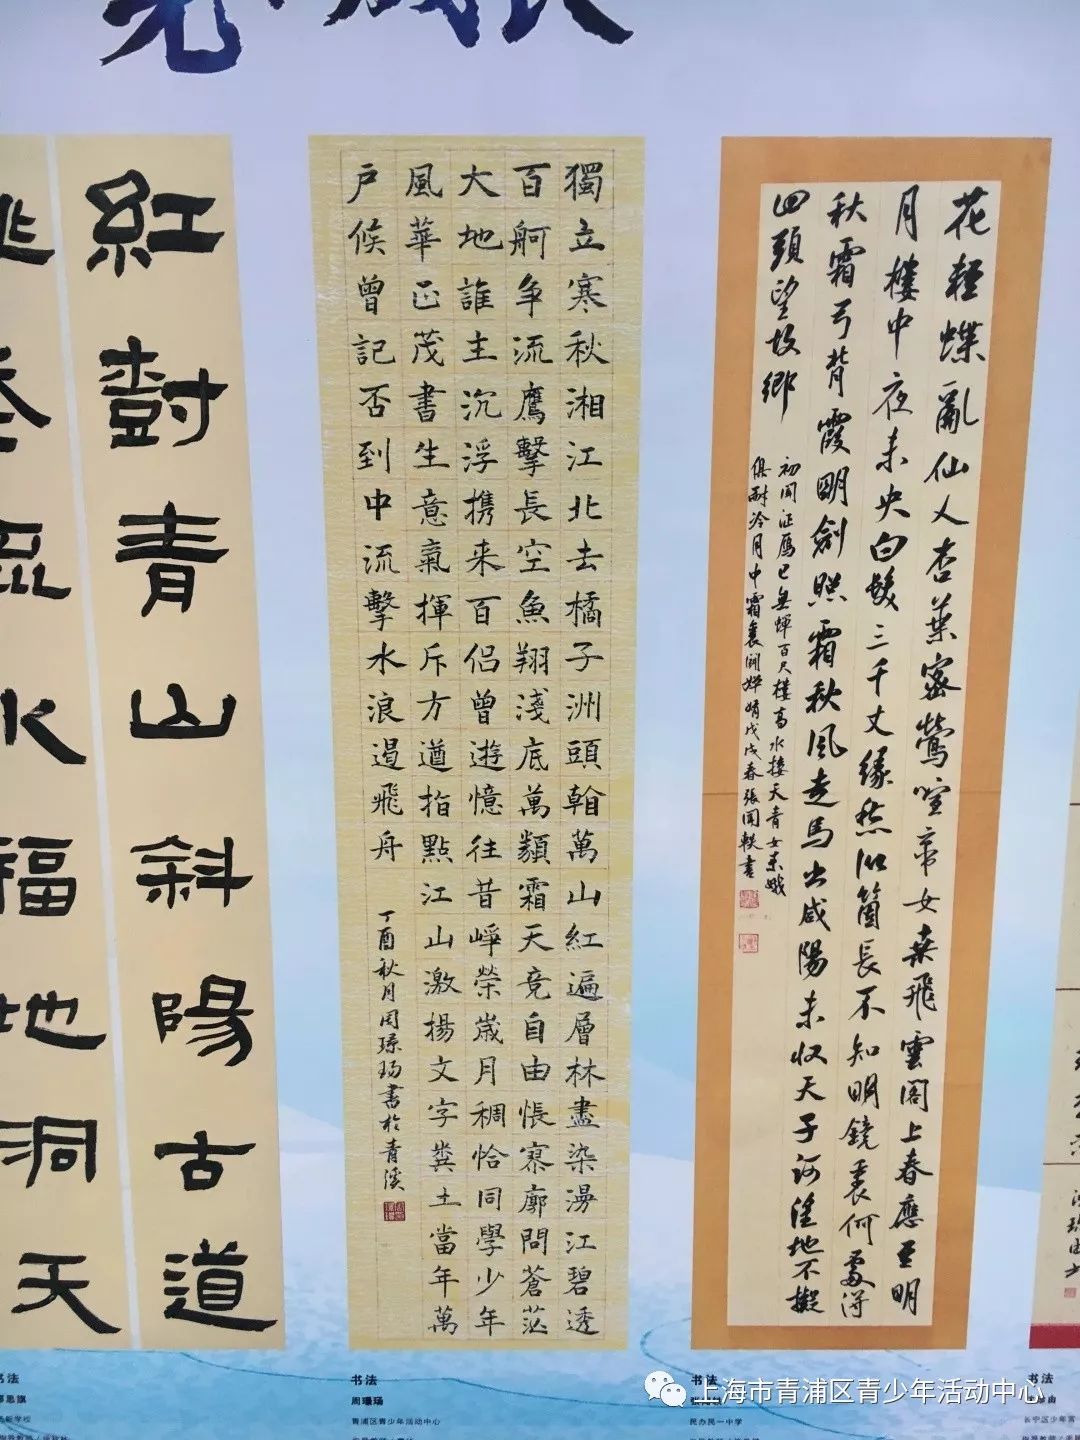 花輕蝶亂仙人杏葉密鶯喧帝女桑飛雲閣上春應至明
月樓中夜未央白髮三千丈緣愁似箇長不知明鏡裏何處得
秋霜弓背霞明劍照霜秋風走馬出咸陽未收天子河湟地不擬
回頭望故鄉
初聞征雁已無蟬百尺樓高水接天青女素娥
俱耐冷月中霜裏鬥嬋娟戊戌春張聞軼書
獨立寒秋湘江北去橘子洲頭看萬山紅遍層林盡染漫江碧透
百舸争流鷹擊長空魚翔淺底萬類霜天竞自由悵寥廓問蒼茫
大地誰主沉浮携来百侣曾遊憶往昔崢嶸歲月稠恰同學少年
風華正茂書生意氣揮斥方遒指點江山激揚文字糞土當年萬
户候曾記否到中流擊水浪遏飛舟
丁酉秋月周璟瑒書於青溪
紅樹青山斜陽古道
桃花流水福地洞天
书法
书法
周璟玚
青浦区青少年活动中心
书法
民办民一中学
书法
上海市青浦区青少年活动中心